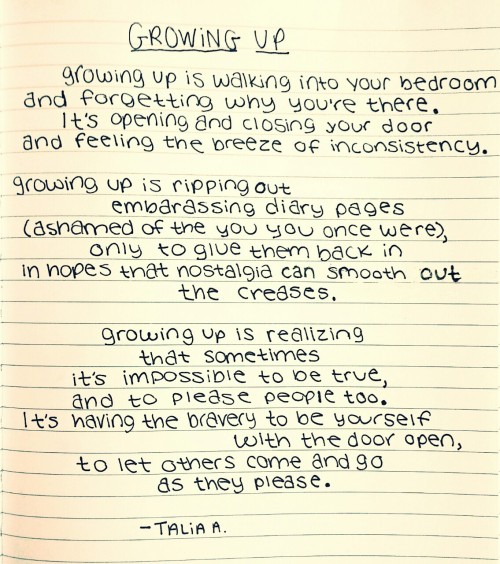 GROWING UP
growing up is walking into your bedroom
and forgetting why you're there.
It's opening and closing your door
and feeling the breeze of inconsistency.
growing up is ripping out
embarassing diary pages
(ashamed of the you you once were),
only to glue them back in
in hopes that nostalgia can smooth out
the creases.
growing up is realizing
that sometimes
it's impossible to be true,
and to please people too.
It's having the bravery to be yourself
with the door open,
to let others come and go
as they please.
- TALIA A.